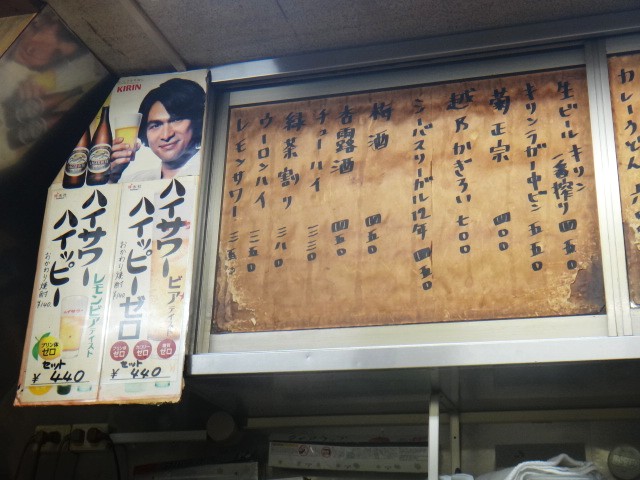 カレーうどん
生ビール キリン一番搾り 四五〇
キリンラガー中ビン 五五〇
菊正宗 四〇〇
越乃かぎろい 七〇〇
シーバスリーガル12年 四五〇
梅酒 四五〇
杏露酒 四五〇
チューハイ 三三〇
緑茶割り 三八〇
ウーロンハイ 三五〇
レモンサワー 三五〇
KIRIN
ハイサワー
ハイッピーゼロ
ビアテイスト
おかわり焼酎
¥140
プリン体ゼロ
カロリーゼロ
糖質ゼロ
セット
¥440
ハイサワー
ハイッピー
レモンビアテイスト
おかわり焼酎
¥140
プリン体ゼロ
セット
¥440